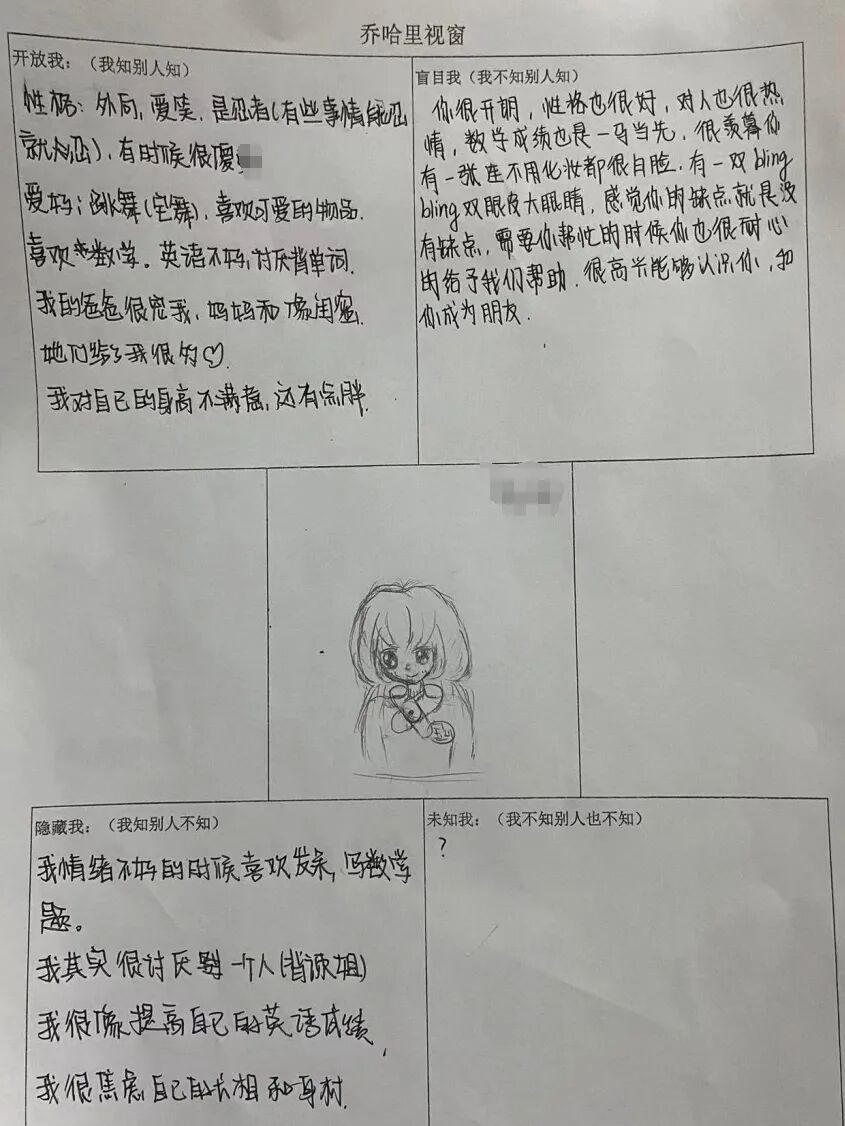 乔哈里视窗
开放我：（我知别人知）
性格：外向，爱笑，是忍者（有些事情能忍
就忍），有时候很傻
爱好：跳舞（宅舞），喜欢可爱的物品．
喜欢数学。英语不好，讨厌背单词．
我的爸爸很宠我，妈妈和像闺蜜．
她们给了我很的♡．
我对自己的身高不满意，还有点胖．
盲目我（我不知别人知）
你很开朗，性格也很好，对人也很热
情，数学成绩也是一马当先，很羡慕你
有一张连不用化妆都很白脸．有一双bling
bling双眼皮大眼睛，感觉你的缺点就是没
有缺点，需要你帮忙的时候你也很耐心
的给予我们帮助．很高兴能够认识你，和
你成为朋友．
隐藏我：（我知别人不知）
我情绪不好的时候喜欢发呆，写数学
题。
我其实很讨厌一个人
我很像提高自己的英语成绩，
我很焦虑自己的长相和身材．
未知我：（我不知别人也不知）
？